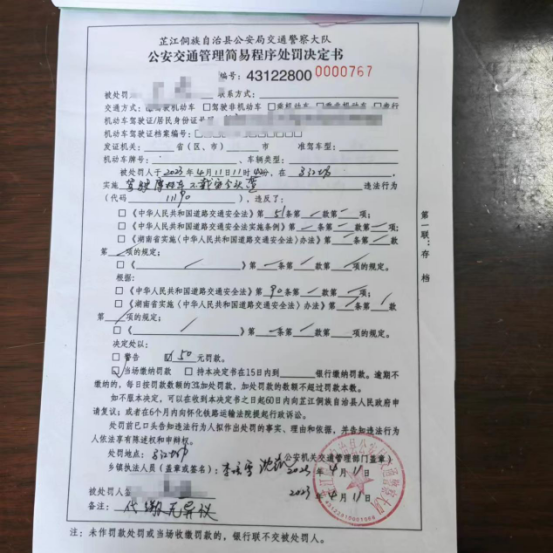 芷江侗族自治县公安局交通警察大队
公安交通管理简易程序处罚决定书
编号:43122800 0000767
被处罚 联系方式:
交通方式: 驾驶机动车 □驾驶非机动车 □乘机动车 □乘非机动车 □步行
机动车驾驶证/居民身份证号
机动车驾驶证档案编号:
发证机关: 省(区、市) 市 准驾车型:
机动车牌号: 、车辆类型:
被处罚人于2023年4月11日11时 分,在
实施 驾驶摩托车不戴安全头盔 违法行为
(代码 ),违反了:
□《中华人民共和国道路交通安全法》第51条第/款第/项;
□《中华人民共和国道路交通安全法实施条例》第/条第/款第/项;
□《湖南省实施〈中华人民共和国道路交通安全法〉办法》第/条第/款
第/项的规定。
□《 / 》第/条第/款第/项的规定。
根据:
□《中华人民共和国道路交通安全法》第90条第/款第/项;
□《湖南省实施〈中华人民共和国道路交通安全法〉办法》第/条第/款
第/项的规定。
□《 / 》第/条第/款第/项的规定。
决定处以:
□ 警告 ☑ 50元罚款。
☑ 当场缴纳罚款 □ 持本决定书在15日内到 银行缴纳罚款。逾期不
缴纳的,每日按罚款数额的3%加处罚款,加处罚款的数额不超过罚款本数。
如不服本决定,可以在收到本决定书之日起60日内向芷江侗族自治县人民政府申
请复议;或者在6个月内向怀化铁路运输法院提起行政诉讼。
处罚前已口头告知违法行为人拟作出处罚的事实、理由和依据,并告知违法行为
人依法享有陈述权和申辩权。
处罚地点: 公安机关交通管理部门盖章)
乡镇执法人员(盖章或签名): 2023年4月11日
被处罚人签 2023年4月11日
备注: 代缴无异议
注:未作罚款处罚或当场收缴罚款的,银行联不交被处罚人。
第一联:存档